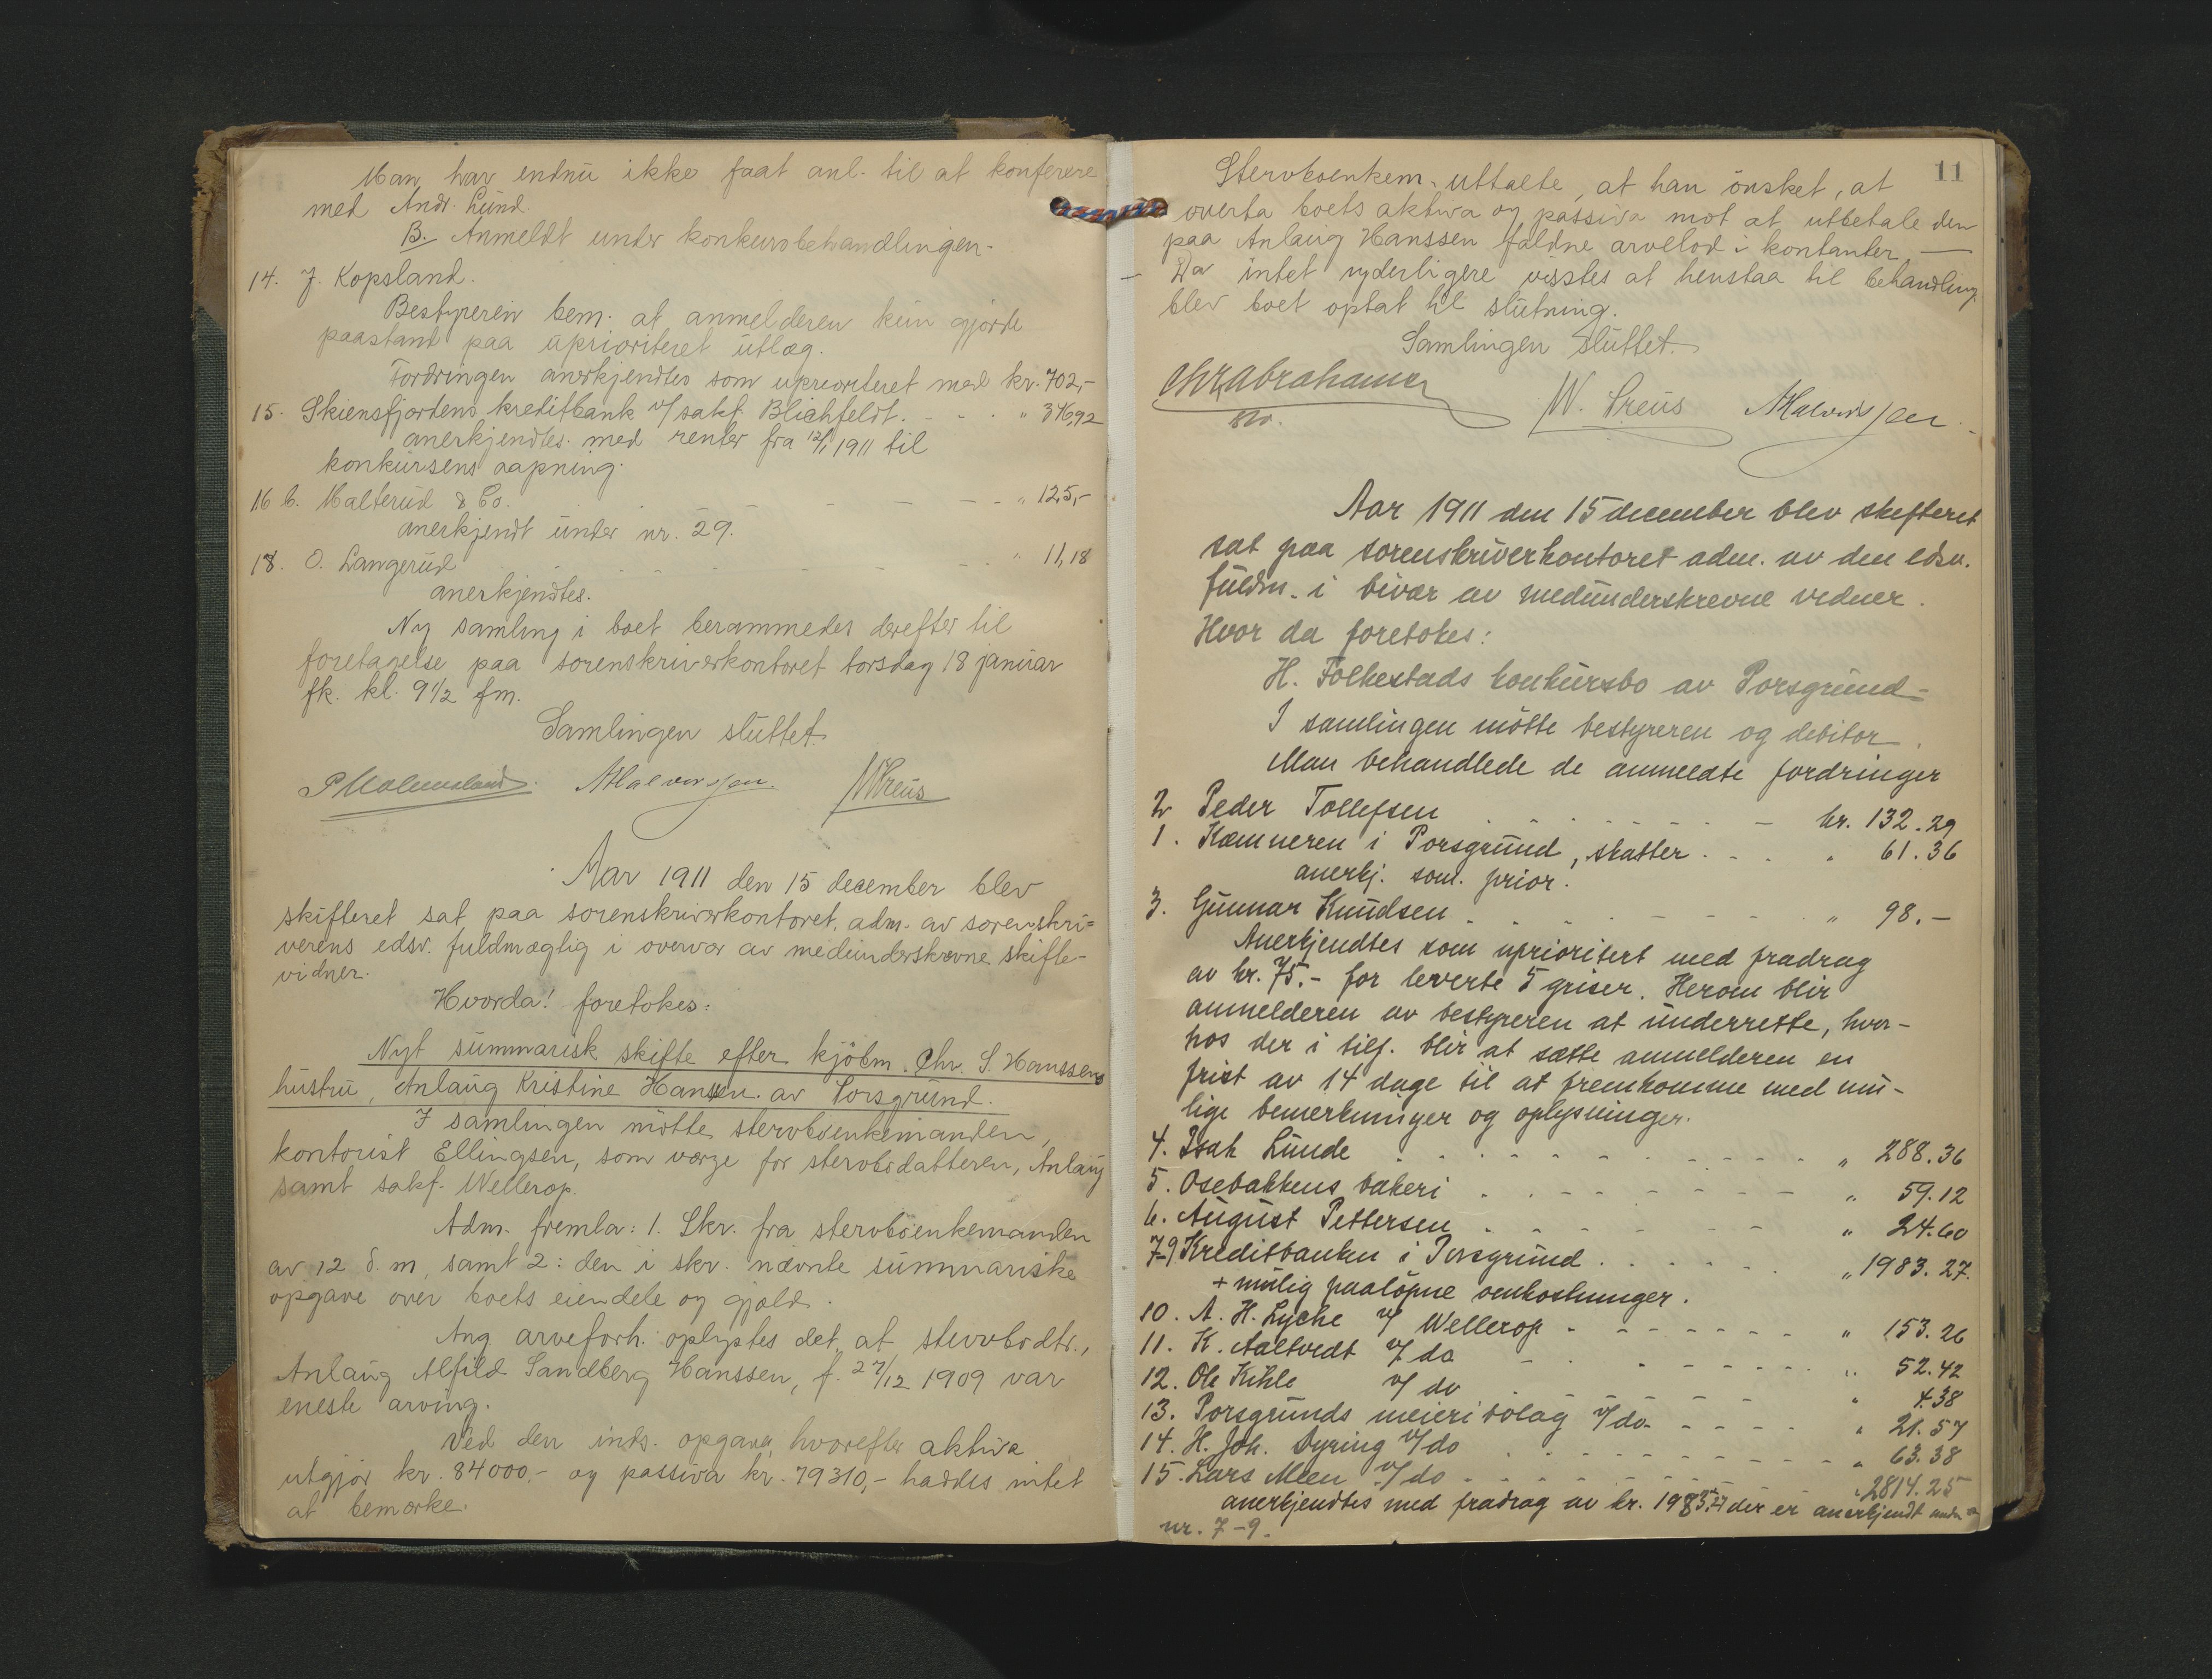 Man har endnu ikke faat anl. til at konferere
med Andr. Lund.
B. Anmeldt under konkursbehandlingen.
14. J. Kopsland.
Bestyreren bem. at anmelderen kun gjorde
paastand paa uprioriteret utlæg.
Fordringen anerkjendtes som uprioriteret med kr. 702,-
15. Skiensfjordens kreditbank v/ sakf. Blichfeldt. - - . " 346,92
anerkjendtes med renter fra 12/1 1911 til
konkursens aapning.
16 b. Malterud & Co. . - - - - " 125,-
anerkjendt under nr. 29.
18. O. Langerud . - - - - - - . " 11,18
anerkjendtes.
Ny samling i boet berammedes derefter til
foretagelse paa sorenskriverkontoret torsdag 18 januar
fk. kl. 9 1/2 fm.
Samlingen sluttet.
AHalvorssen. W Preus
Aar 1911 den 15 december blev
skifteret sat paa sorenskriverkontoret, adm. av sorenskri=
verens edsv. fuldmægtig i overvær av medunderskrevne skifte-
vidner.
Hvorda! foretokes:
Nyt summarisk skifte efter kjöbm. Chr. S. Hanssens
hustru, Anlaug Kristine Hansen av Porsgrund.
I samlingen mötte stervboenkemanden,
kontorist Ellingsen, som værge for stervbodatteren, Anlaug
samt sakf. Wellerop.
Adm. fremla: 1. Skr. fra stervboenkemanden
av 12 d. m, samt 2: den i skr. nævnte summariske
opgave over boets eiendele og gjæld.
Ang. arveforh. oplystes det at stervbodtr.,
Anlaug Alfild Sandberg Hanssen, f. 27/12 1909 var
eneste arving.
Ved den inds. opgave, hvorefter aktiva
utgjør kr. 84000,- og passiva kr. 79310,- haddes intet
at bemærke.
11
Stervboenkem. uttalte, at han önsket, at
overta boets aktiva og passiva mot at utbetale den
paa Anlaug Hanssen faldne arvelod i kontanter. —
- Da intet yderligere visstes at henstaa til behandling
blev boet optat til slutning.
Samlingen sluttet.
Chr Abrahamsen W. Preus AHalvorssen.
Aar 1911 den 15 december blev skifteret
sat paa sorenskriverkontoret adm. av den edsv.
fuldm. i bivær av medunderskrevne vidner.
Hvor da foretokes:
H. Folkestads konkursbo av Porsgrund-
I samlingen mötte bestyreren og debitor.
Man behandlede de anmeldte fordringer
2 Peder Tollefsen . . - - - - - kr. 132.29
1. Kæmneren i Porsgrund, skatter. - . . " 61.36
anerkj. som. prior.
3. Gunnar Knudsen . . . - - - - " 98.-
Anerkjendtes som uprioritert med fradrag
av kr. 75.- for leverte 5 griser. Herom blir
anmelderen av bestyreren at underrette, hvor-
hos der i tilf. blir at sætte anmelderen en
frist av 14 dage til at fremkomme med mu-
lige bemerkninger og oplysninger.
4. Isak Lunde . . . - - - - - " 288.36
5. Osebakkens bakeri . . - - - - - " 59.12
6. August Pettersen . . - - - - " 24.60
7-9 Kreditbanken i Porsgrund . . . . . . " 1983.27.
+ mulig paalöpne omkostninger.
10. A. H. Lyche v/ Wellerop . - - - - - . " 153.26
11. K. Aaltvedt v/ do - . . - - - - . . . " 52.42
12. Ole Kihle v/ do . - - - - - - " 4.38
13. Porsgrunds meieribolag v/do. - - - - . " 21.57
14. H. Joh. Dyring v/ do . . - - - - - - - " 63.38
15. Lars Moen v/ do . - . . . - - - - " 2814.25
anerkjendtes med fradrag av kr. 1983,27 der er anerkjendt under
nr. 7-9.